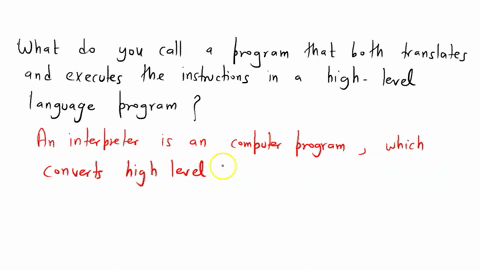 What do you call a program that both translates
and executes the instructions in a high-level
language program ?
An interpreter is an computer program , which
converts high level